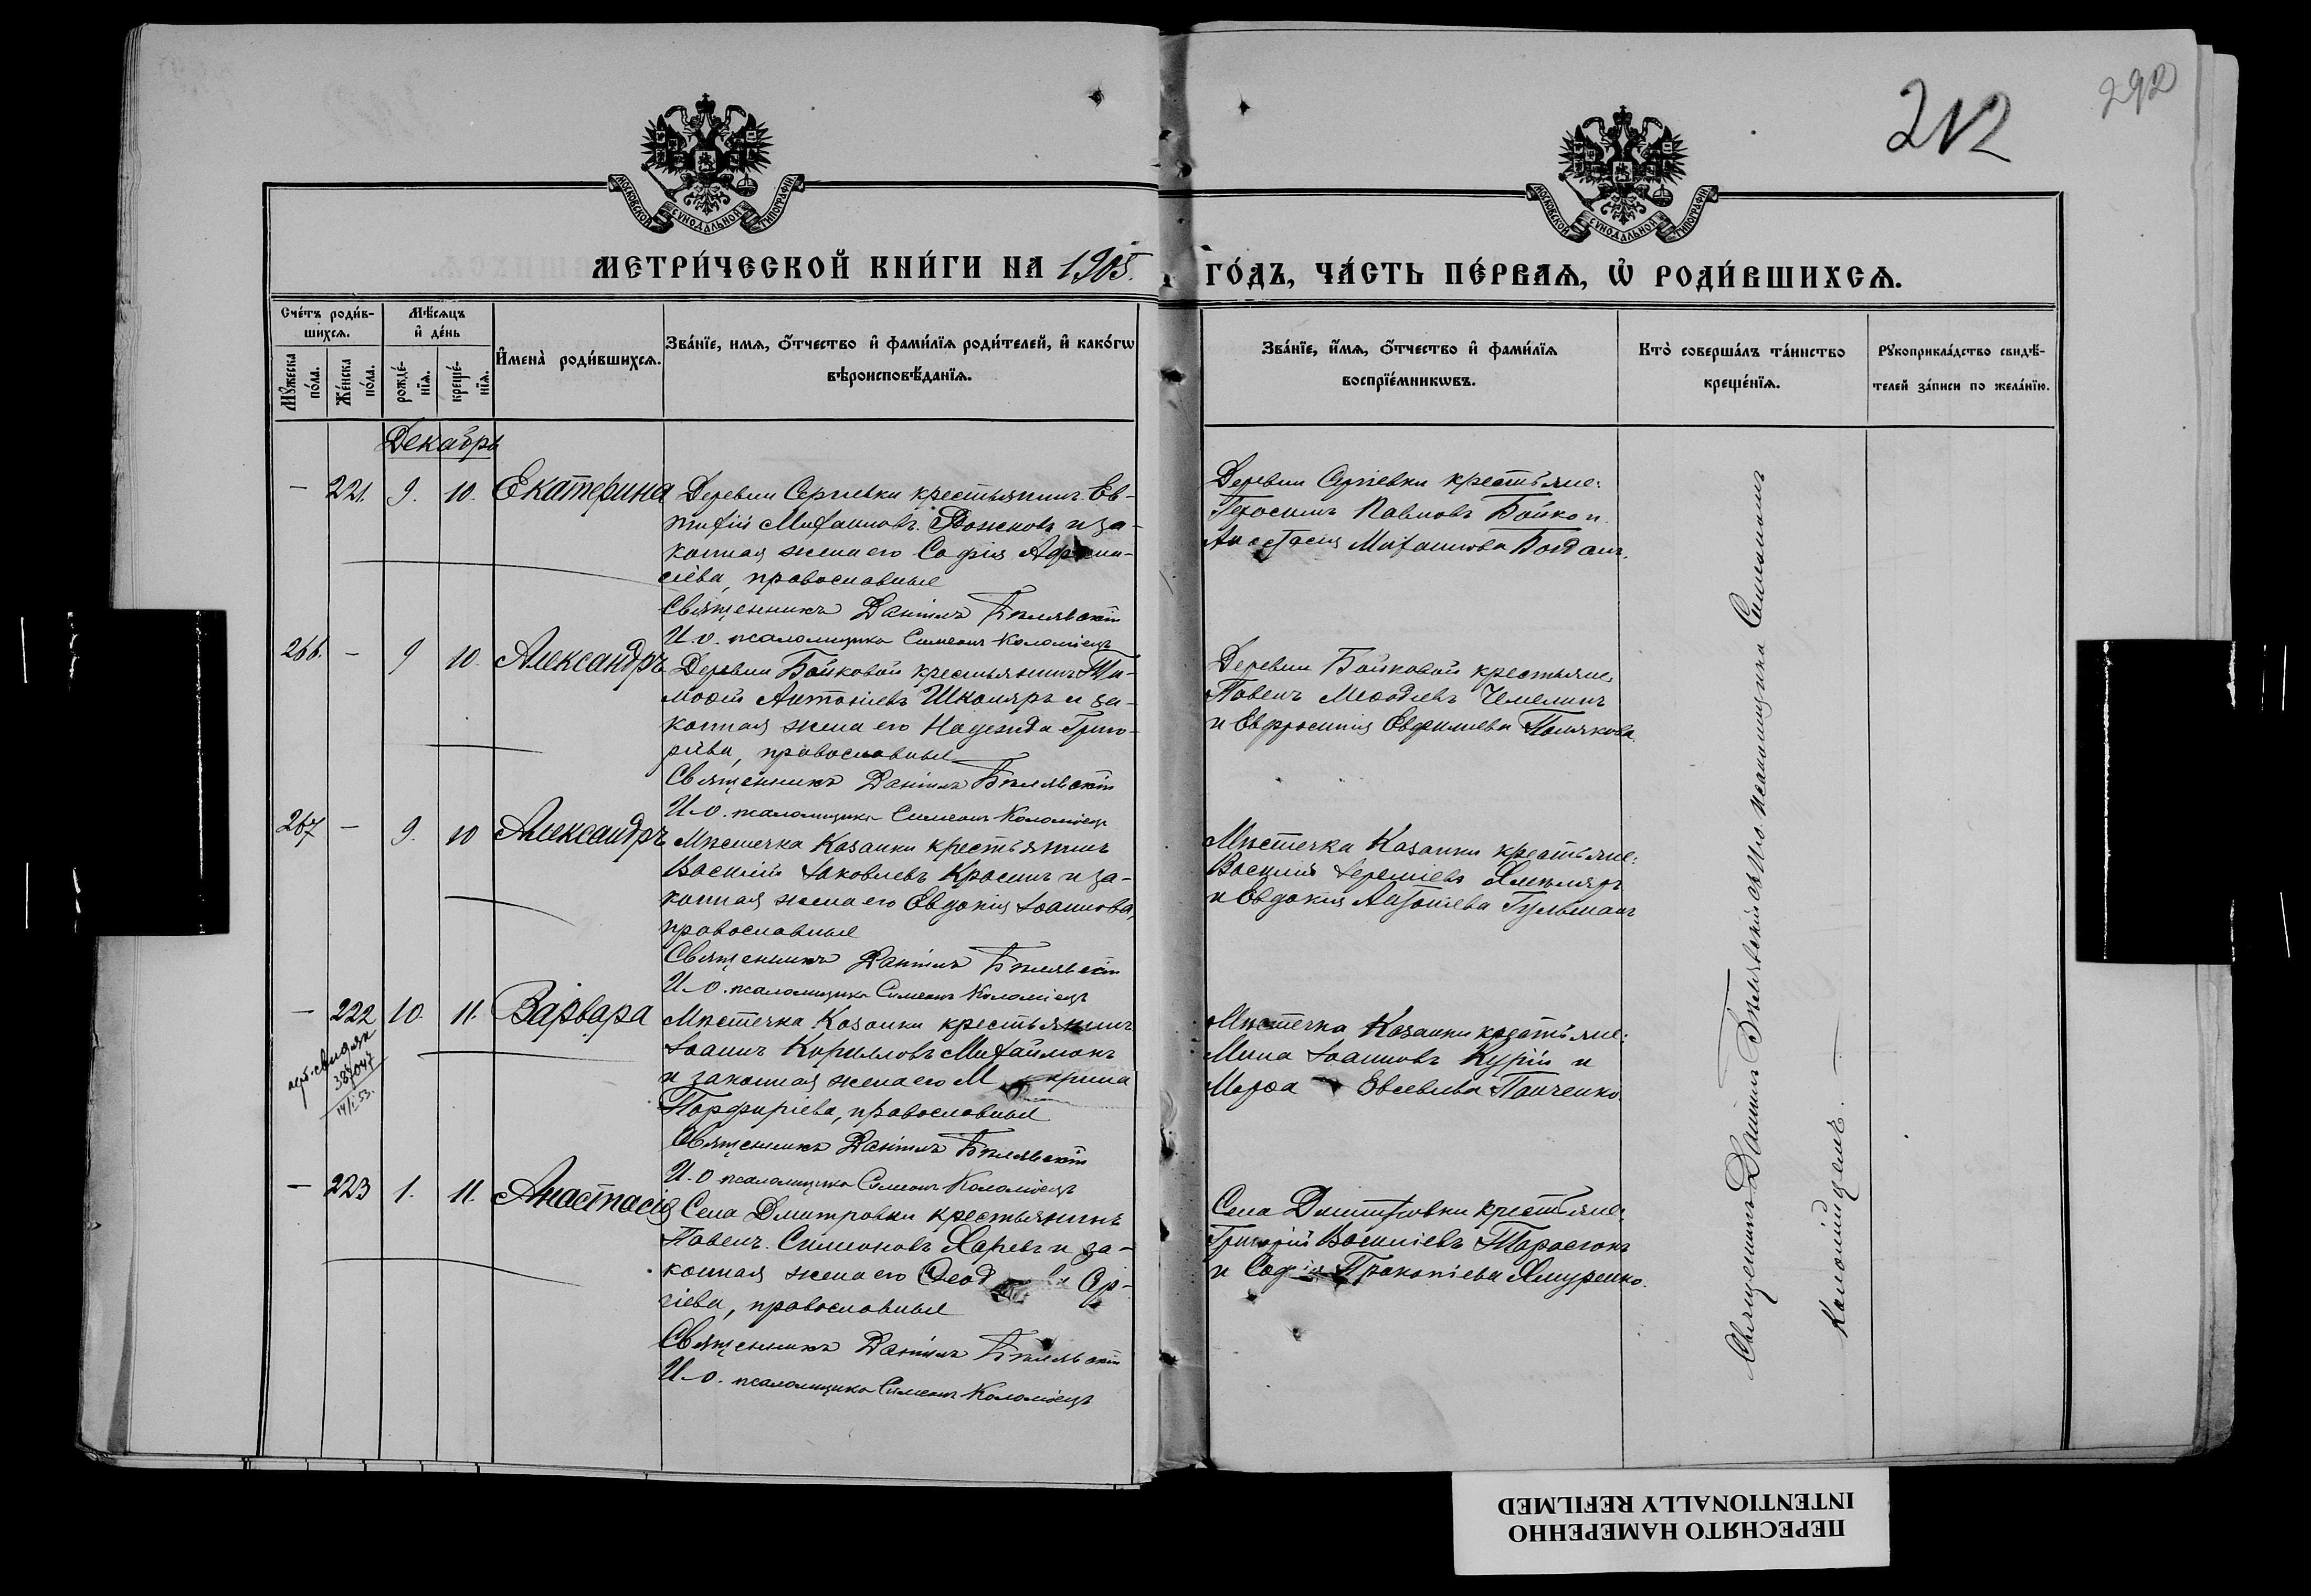 292
212
МОСКОВСКОЙ СѴНОДАЛЬНОЙ ТИПОГРАФІИ
МОСКОВСКОЙ СѴНОДАЛЬНОЙ ТИПОГРАФІИ
МЕТРИ́ЧЕСКОЙ КНИ́ГИ НА 1905.
ГО́ДЪ, ЧА́СТЬ ПЕ́РВАЯ, Ѡ҆ РОДИ́ВШИХСЯ.
Сче́тъ роди́в-
шихся.
Мꙋ́жеска по́ла.
Же́нска по́ла.
Мѣ́сяцъ и҆ де́нь
рожде́-
нїя.
креще́-
нїя.
И҆мена̀ роди́вшихся.
Зва́нїе, имя, ѻ҆́тчество и҆ фами́лїя роди́телей, и҆ како́гѡ
вѣроисповѣ́данїя.
Зва́нїе, и҆́мя, ѻ҆́тчество и҆ фами́лїя
воспрїе́мникѡвъ.
Кто̀ соверша́лъ та́инство
креще́нїя.
Рꙋкоприкла́дство свидѣ́-
телей за́писи по жела́нїю.
Декабрь
— 221. 9. 10. Екатерина
Деревни Сергіевки крестьянинъ Ев-
тифій Михаиловъ и за-
конная жена его Софія
сіева, православные
Священникъ Даніилъ Бѣлявскій
И. о. псаломщика Симеонъ Коломіецъ
Деревни Сергіевки крестьяне:
Герасимъ Павловъ Бойко и
Анастасія Михаилова Богданъ.
266. — 9 10. Александръ
Деревни Бойковой крестьянинъ Ти-
моѳей Антоніевъ Школяръ и за-
конная жена его Надежда Григо-
ріева, православные
Священникъ Даніилъ Бѣлявскій
И. о. псаломщика Симеонъ Коломіецъ
Деревни Бойковой крестьяне,
Павелъ Меѳодіевъ Чемелинъ
и Евфросинія Евфиміева Полякова.
267 — 9. 10 Александръ
Мѣстечка Казанки крестьянинъ
Василій Іаковлевъ Красинъ и за-
конная жена его Евдокія Іоаннова,
православные
Священникъ Даніилъ Бѣлявскій
И. о. псаломщика Симеонъ Коломіецъ
Мѣстечка Казанки крестьяне:
Василій Іереміевъ
и Евдокія Антоніева Гульманъ
— 222 10. 11. Варвара
387047
14/I 53.
Мѣстечка Казанки крестьянинъ
Іоаннъ Кирилловъ Михайлюкъ
и законная жена его
Порфиріева, православные
Священникъ Даніилъ Бѣлявскій
И. о псаломщика Симеонъ Коломіецъ
Мѣстечка Казанки крестьяне:
Мина Іоанновъ Курій и
Марѳа Евсевіева Панченко.
— 223 1. 11. Анастасія
Села Дмитровки крестьянинъ
Павелъ Симеоновъ и за-
конная жена его
сіева, православные
Священникъ Даніилъ Бѣлявскій
И. о. псаломщика Симеонъ Коломіецъ
Села Дмитровки крестьяне:
Григорій Василіевъ Тарасюкъ
и Софія Прокопіева
Священникъ Даніилъ Бѣлявскій съ И. о. псаломщика Симеономъ
Коломійцемъ.
ПЕРЕСНЯТО НАМЕРЕННО
INTENTIONALLY REFILMED